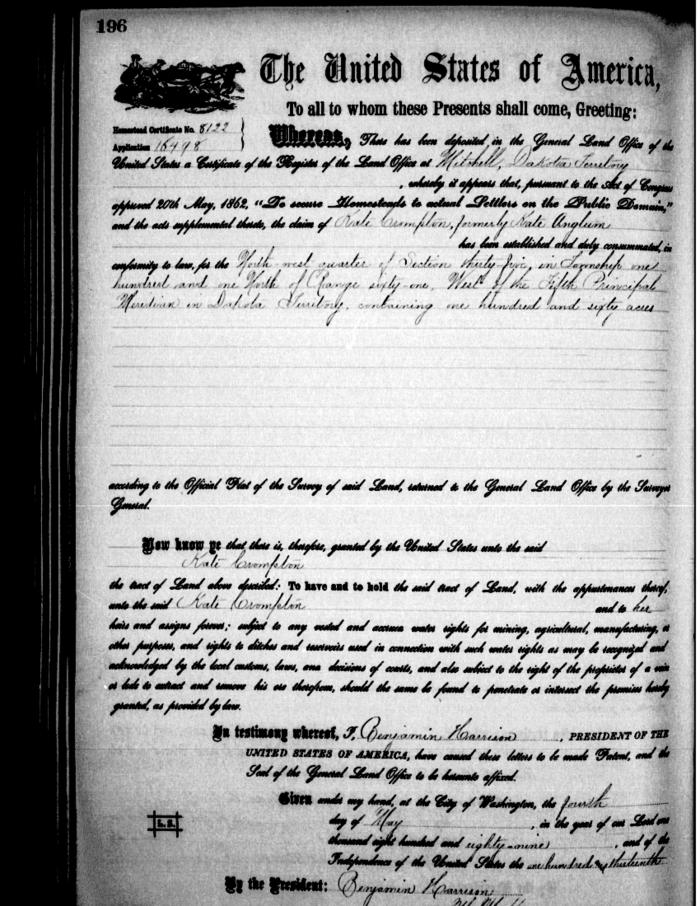 196
The United States of America,
To all to whom these Presents shall come, Greeting:
Homestead Certificate No. 8122
Application 16498
Whereas, There has been deposited in the General Land Office of the
United States a Certificate of the Register of the Land Office at Mitchell, Dakota Territory
, whereby it appears that, pursuant to the Act of Congress
approved 20th May, 1862, "To secure Homesteads to actual Settlers on the Public Domain,"
and the acts supplemental thereto, the claim of Kate Crompton, formerly Kate Anglum
has been established and duly consummated, in
conformity to law, for the North-west quarter of Section thirty-five, in Township one
hundred and one North of Range sixty-one, West of the Fifth Principal
Meridian in Dakota Territory, containing one hundred and sixty acres
according to the Official Plat of the Survey of said Land, returned to the General Land Office by the Surveyor
General.
Now know ye that there is, therefore, granted by the United States unto the said
Kate Crompton
the tract of Land above described: To have and to hold the said tract of Land, with the appurtenances thereof,
unto the said Kate Crompton and to her
heirs and assigns forever; subject to any vested and accrued water rights for mining, agricultural, manufacturing, or
other purposes, and rights to ditches and reservoirs used in connection with such water rights as may be recognized and
acknowledged by the local customs, laws, and decisions of courts, and also subject to the right of the proprietor of a vein
or lode to extract and remove his ore therefrom, should the same be found to penetrate or intersect the premises hereby
granted, as provided by law.
In testimony whereof, I, Benjamin Harrison, PRESIDENT OF THE
UNITED STATES OF AMERICA, have caused these letters to be made Patent, and the
Seal of the General Land Office to be hereunto affixed.
Given under my hand, at the City of Washington, the fourth
day of May, in the year of our Lord one
thousand eight hundred and eighty-nine, and of the
Independence of the United States the one hundred and thirteenth
L.S.
By the President: Benjamin Harrison